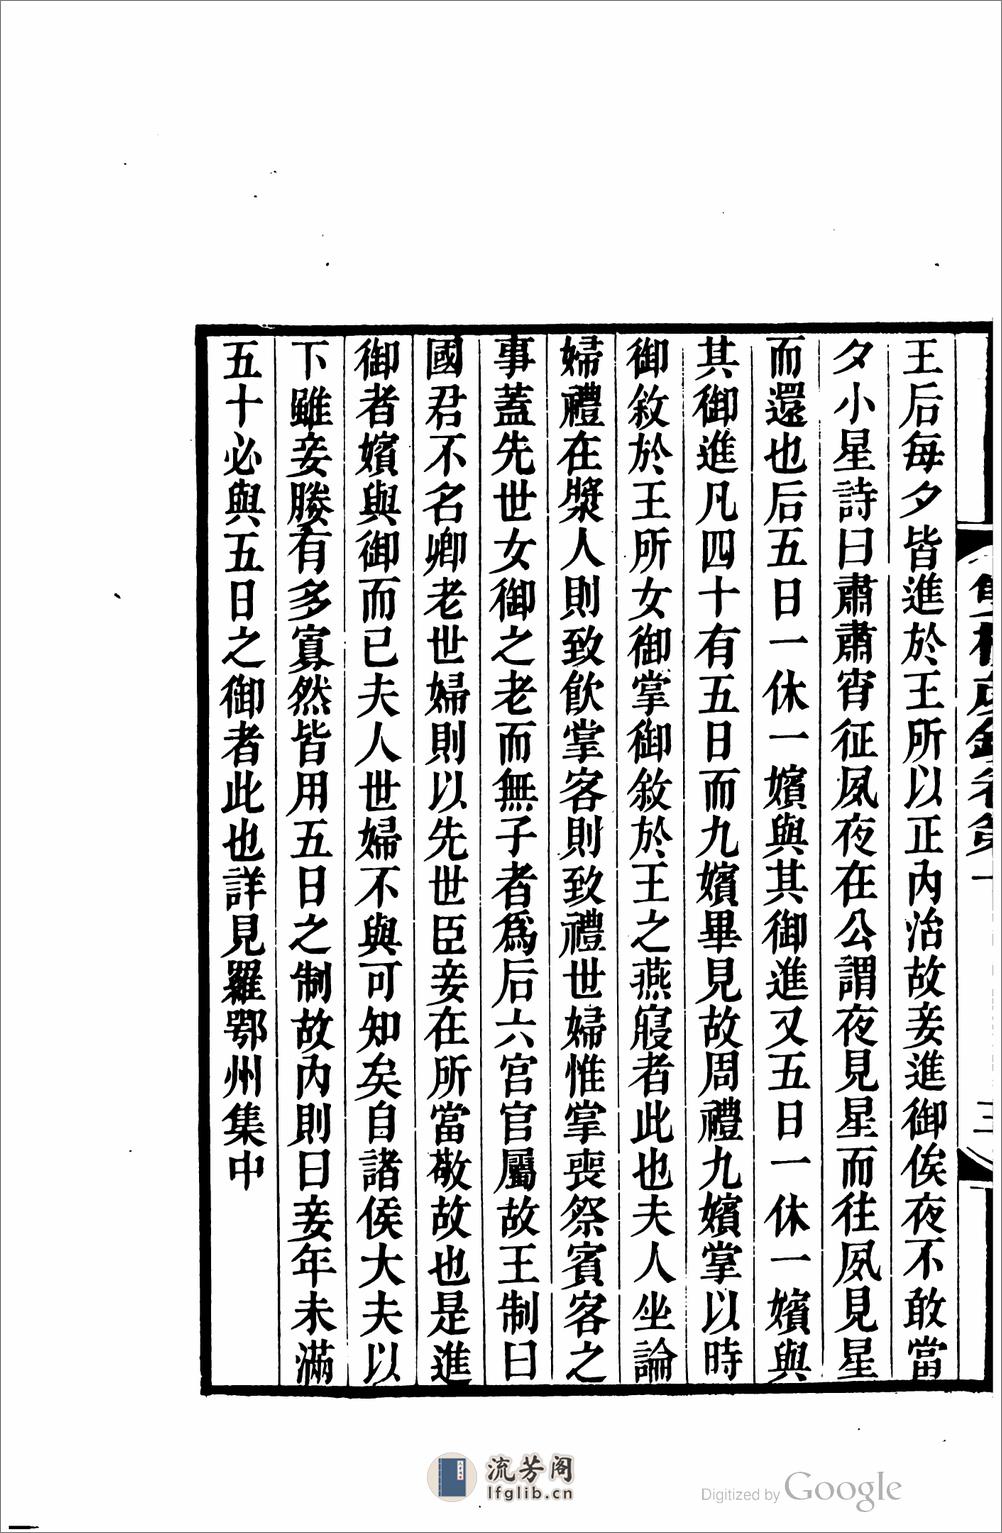 王后每夕皆進於王所以正內治故妾進御俟夜不敢當
夕小星詩曰肅肅宵征夙夜在公謂夜見星而往夙見星
而還也后五日一休一嬪與其御進又五日一休一嬪與
其御進凡四十有五日而九嬪畢見故周禮九嬪掌以時
御敘於王所女御掌御敘於王之燕寢者此也夫人坐論
婦禮在漿人則致飲掌客則致禮世婦惟掌喪祭賓客之
事蓋先世女御之老而無子者爲后六宮官屬故王制曰
國君不名卿老世婦則以先世臣妾在所當敬故也是進
御者嬪與御而已夫人世婦不與可知矣自諸侯大夫以
下雖妾媵有多寡然皆用五日之制故內則曰妾年未滿
五十必與五日之御者此也詳見羅鄂州集中
三
流芳阁
lfglib.cn
Digitized by Google